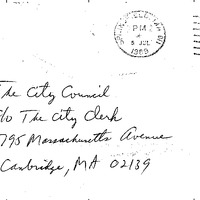 PM
5 JUL
1989
The City Council
c/o The City Clerk
795 Massachusetts Avenue
Cambridge, MA 02139